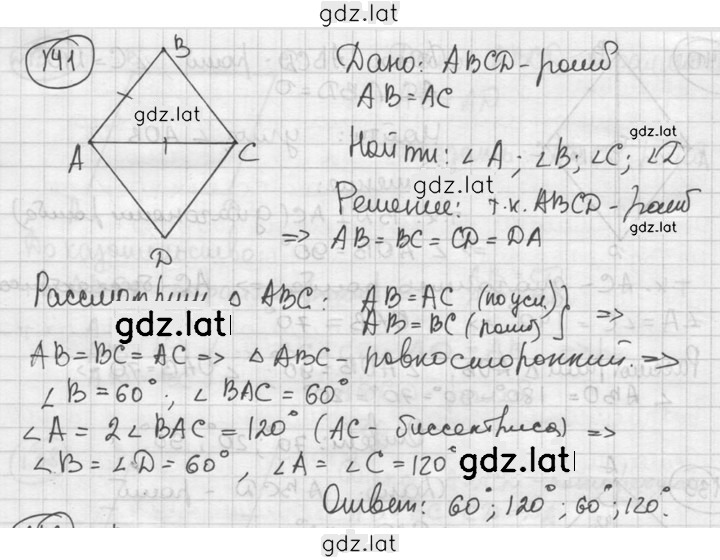 gdz.lat
141
B
A
C
D
gdz.lat
Дано: ABCD - ромб
AB = AC
Найти: ∠A; ∠B; ∠C; ∠D
gdz.lat
Решение: т.к. ABCD - ромб
gdz.lat
=> AB = BC = CD = DA
Рассмотрим △ ABC: AB = AC (по усл)
gdz.lat
gdz.lat
AB = BC (ромб) } =>
AB = BC = AC => △ ABC - равносторонний =>
∠B = 60°; ∠BAC = 60°
∠A = 2∠BAC = 120° (AC - биссектриса) =>
∠B = ∠D = 60°, ∠A = ∠C = 120°
gdz.lat
Ответ: 60°; 120°; 60°; 120°.
gdz.lat